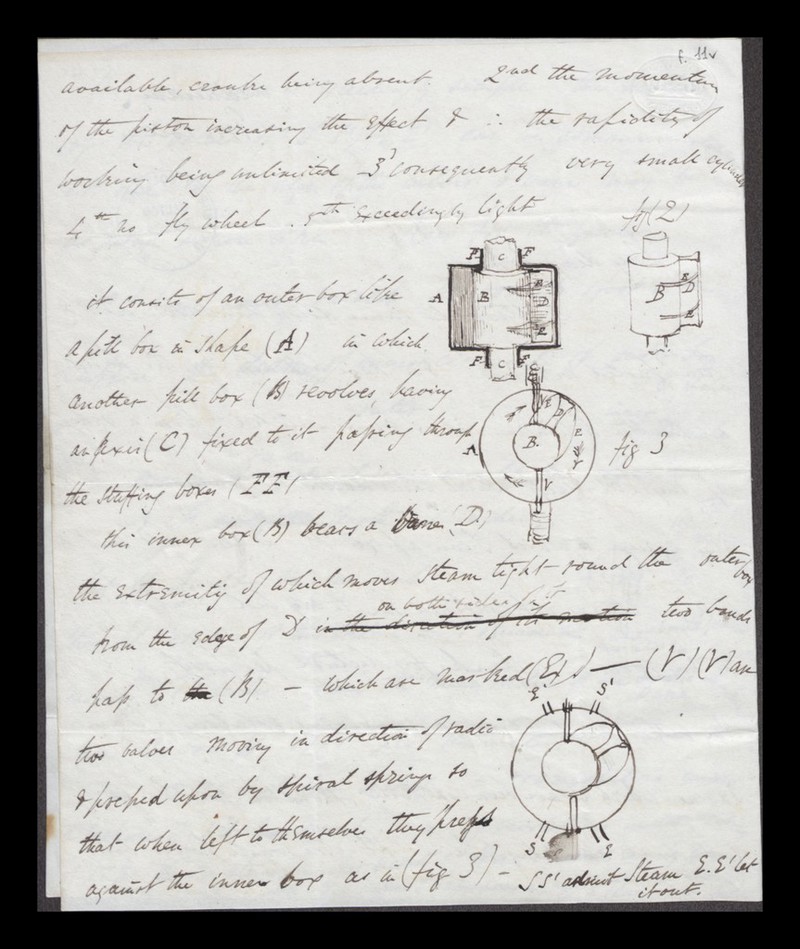 f. 11v
available, cranks being absent. 2nd the momentum
of the piston increasing the effect & ∴ the rapidity of
working being unlimited 3 consequently very small cylinder
4th no fly wheel . 5th Exceedingly light
fig (2)
it consits of an outer box like
a pill box in shape (A) in which
another pill box (B) revolves, having
an axis (C) fixed to it passing through
the stuffing boxes (FF)
fig 3
this inner box (B) bears a Vane (D)
the extremity of which moves steam tight round the outer box
on both sides of it
from the edge of D in the direction of its motion two bands
pass to the (B) – which are marked (E) — (V) (V) are
two valves moving in direction of radii
& pressed upon by spiral springs so
that when left to themselves they press
against the inner box as in (fig 3) –
S S' admit Steam E. E' let
it out.
P C F
A B E D E
F C F
B E D E
A B. V E D E V
E' S'
S E